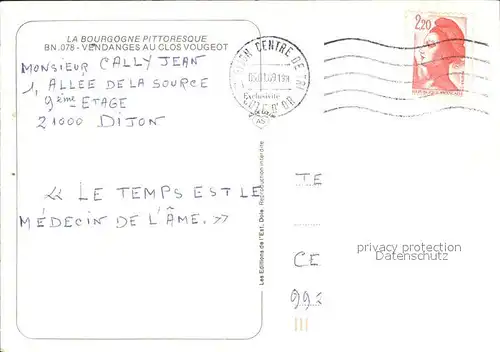 LA BOURGOGNE PITTORESQUE
BN.078 - VENDANGES AU CLOS VOUGEOT
MONSIEUR CALLY JEAN
1, ALLÉE DE LA SOURCE
9ème ETAGE
21000 DIJON
« LE TEMPS EST LE
MÉDECIN DE L'ÂME. »
DIJON CENTRE DE TRI
CÔTE D'OR
2,20
Les Editions de l'Est. Dole Reproduction interdite
TE
CE
992
privacy protection
Datenschutz